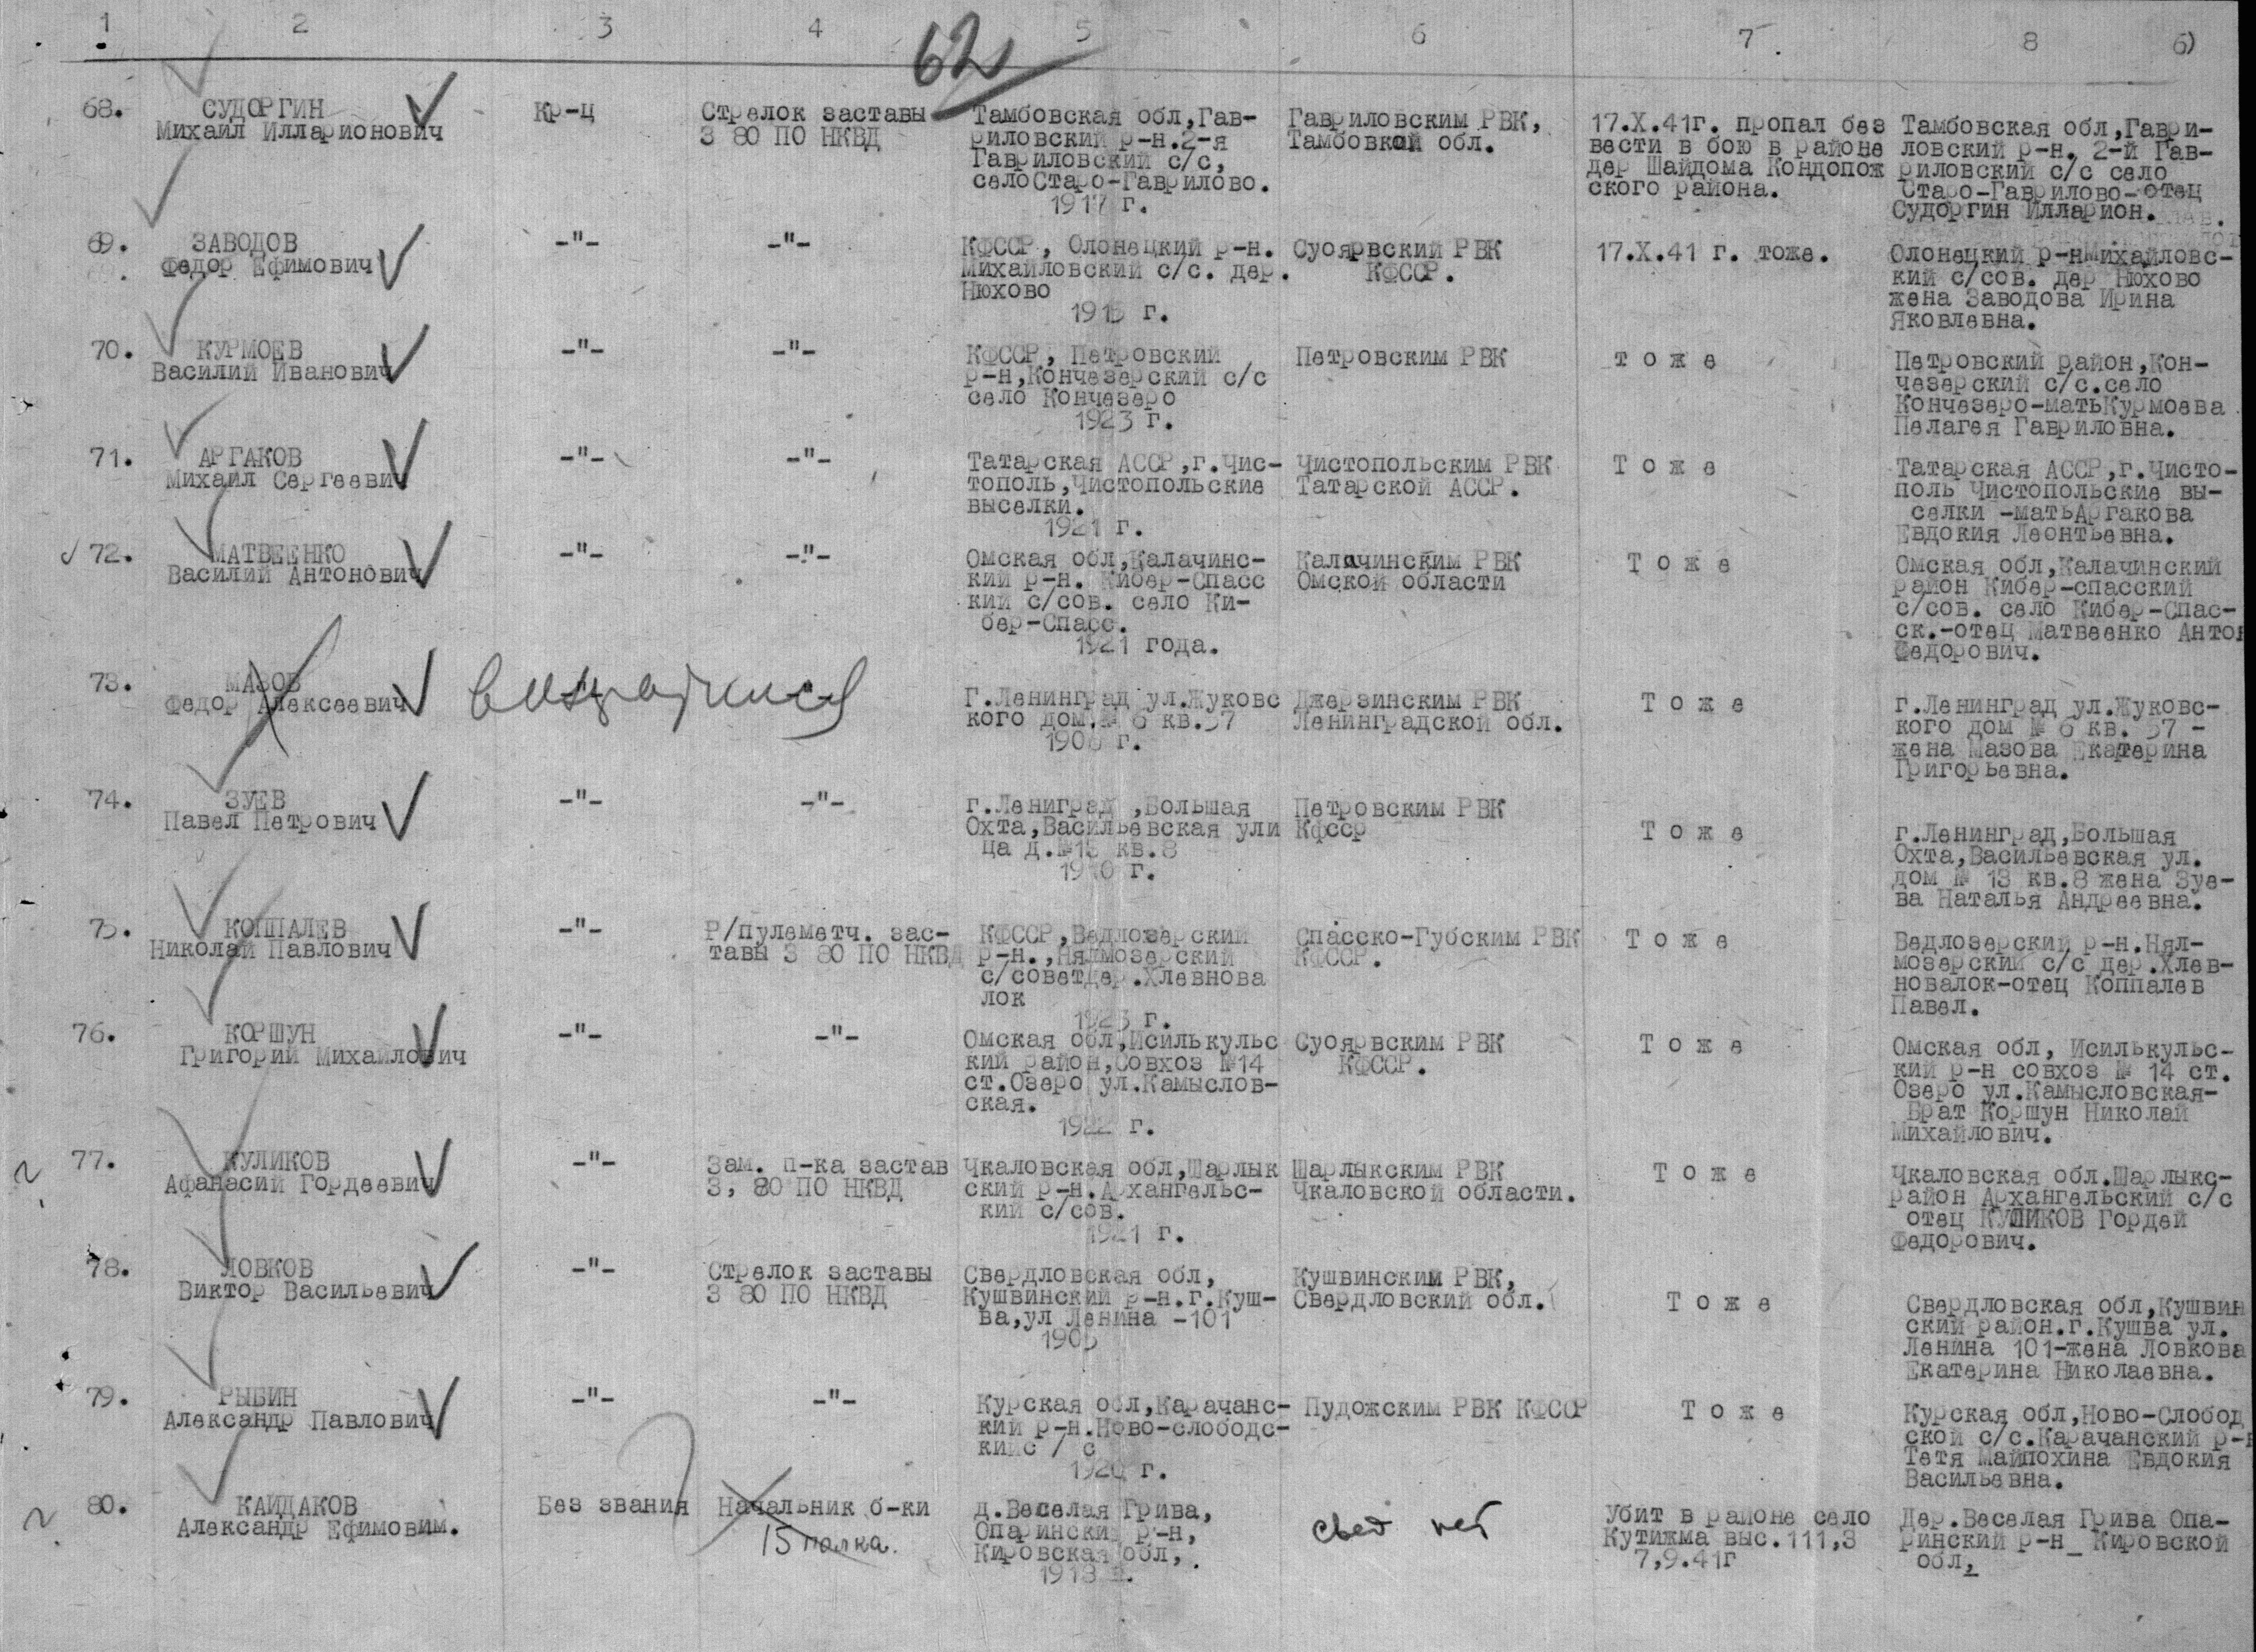 1 2 3 4 5 6 7 8 б)
62
68.
СУДОРГИН
Михаил Илларионович
Кр-ц
Стрелок заставы
3 80 ПО НКВД
Тамбовская обл,Гав-
риловский р-н.2-я
Гавриловский с/с,
селоСтаро-Гаврилово.
1917 г.
Гавриловским РВК,
Тамбовкой обл.
17.X.41г. пропал без
вести в бою в районе
дер Шайдома Кондопож
ского района.
Тамбовская обл,Гаври-
ловский р-н. 2-й Гав-
риловский с/с село
Старо-Гаврилово-отец
Судоргин Илларион.
69.
ЗАВОДОВ
Федор Ефимович
-"-
-"-
КФССР, Олонецкий р-н.
Михайловский с/с. дер.
Нюхово
1915 г.
Суоярвский РВК
КФССР.
17.X.41 г. тоже.
Олонецкий р-нМихайловс-
кий с/сов. дер Нюхово
жена Заводова Ирина
Яковлевна.
70.
КУРМОЕВ
Василий Иванович
-"-
-"-
КФССР, Петровский
р-н,Кончезерский с/с
село Кончезеро
1923 г.
Петровским РВК
т о ж е
Петровский район,Кон-
чезерский с/с.село
Кончезеро-матьКурмоева
Пелагея Гавриловна.
71.
АРГАКОВ
Михаил Сергеевич
-"-
-"-
Татарская АССР,г.Чис-
тополь,Чистопольские
выселки.
1921 г.
Чистопольским РВК
Татарской АССР.
Т о ж е
Татарская АССР,г.Чисто-
поль Чистопольские вы-
селки -матьАргакова
Евдокия Леонтьевна.
72.
МАТВЕЕНКО
Василий Антонович
-"-
-"-
Омская обл,Калачинс-
кий р-н. Кибер-Спасс
кий с/сов. село Ки-
бер-Спасс.
1921 года.
Калачинским РВК
Омской области
Т о ж е
Омская обл,Калачинский
район Кибер-спасский
с/сов. село Кибер-Спас-
ск.-отец Матвеенко Антон
Федорович.
73.
МАЗОВ
Федор Алексеевич
возвратился
Г.Ленинград ул.Жуковс
кого дом.№ 6 кв.37
Джерзинским РВК
Ленинградской обл.
Т о ж е
г.Ленинград ул.Жуковс-
кого дом № 6 кв. 37 -
жена Мазова Екатерина
Григорьевна.
74.
ЗУЕВ
Павел Петрович
-"-
-"-
г.Лениград ,Большая
Охта,Васильевская ули
ца д.№13 кв.8
Петровским РВК
Кфсср
Т о ж е
г.Ленинград,Большая
Охта,Васильевская ул.
дом № 13 кв.8 жена Зуе-
ва Наталья Андреевна.
75.
КОППАЛЕВ
Николай Павлович
-"-
Р/пулеметч. зас-
тавы 3 80 ПО НКВД
КФССР,Ведлозерский
р-н.,Нялмозерский
с/советдер.Хлевнова
лок
1923 г.
Спасско-Губским РВК
КФССР.
Т о ж е
Ведлозерский р-н.Нял-
мозерский с/с дер.Хлев-
новалок-отец Коппалев
Павел.
76.
КОРШУН
Григорий Михайлович
-"-
-"-
Омская обл,Исилькульс
кий район,Совхоз №14
ст.Озеро ул.Камыслов-
ская.
1922 г.
Суоярвским РВК
КФССР.
Т о ж е
Омская обл, Исилькульс-
кий р-н совхоз № 14 ст.
Озеро ул.Камысловская-
Брат Коршун Николай
Михайлович.
77.
КУЛИКОВ
Афанасий Гордеевич
-"-
Зам. п-ка застав
3, 80 ПО НКВД
Чкаловская обл,Шарлык
ский р-н.Архангельс-
кий с/сов.
1921 г.
Шарлыкским РВК
Чкаловской области.
Т о ж е
Чкаловская обл.Шарлыкс-
район Архангельский с/с
отец КУЛИКОВ Гордей
Федорович.
78.
ЛОВКОВ
Виктор Васильевич
-"-
Стрелок заставы
3 80 ПО НКВД
Свердловская обл,
Кушвинский р-н.г.Куш-
ва,ул Ленина -101
1905
Кушвинским РВК,
Свердловский обл.
Т о ж е
Свердловская обл,Кушвин
ский район.г.Кушва ул.
Ленина 101-жена Ловкова
Екатерина Николаевна.
79.
РЫБИН
Александр Павлович
-"-
-"-
Курская обл,Карачанс-
кий р-н.Ново-слободс-
кийс / с
1920 г.
Пудожским РВК КФССР
Т о ж е
Курская обл,Ново-Слобод
ской с/с.Карачанский р-н
Тетя Майпохина Евдокия
Васильевна.
80.
КАЙДАКОВ
Александр Ефимовим.
Без звания
Начальник б-ки
15 полка.
д.Веселая Грива,
Опаринский р-н,
Кировская обл,.
1918 г.
свед нет
Убит в районе село
Кутижма выс.111,3
7,9.41г
Дер.Веселая Грива Опа-
ринский р-н_ Кировской
обл,